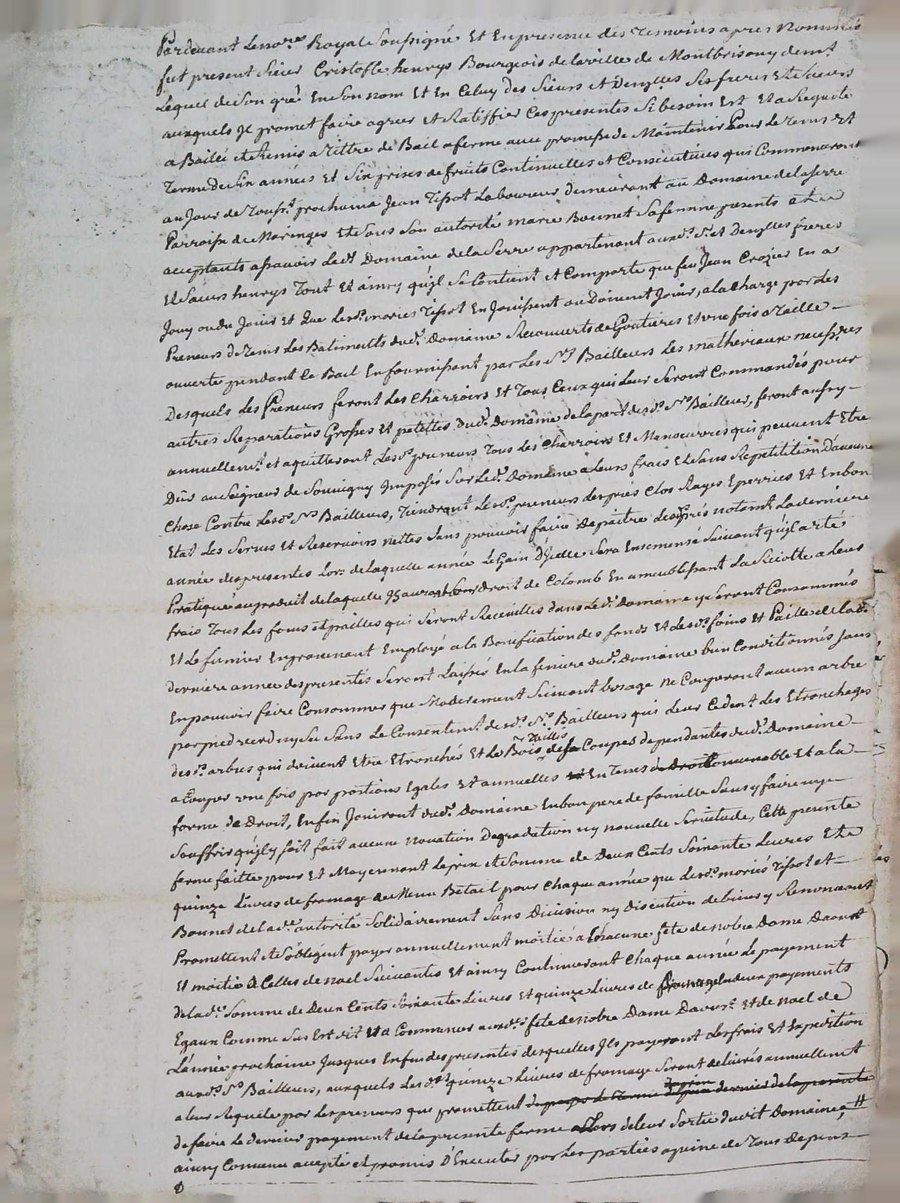 Pardevant Leno.re Royal Soussigné Et En presence des Temoins apres Nommés
fut present Sieur Cristofle henrys Bourgeois de la ville de Montbrison y demt
Lequel de Son gré En Son nom Et en Celuy des Sieurs et Demlles Ses freres Et Soeurs
auxquels Jl promet faire agreer et Ratiffier Ces presentes Si besoin Est Et a Sequité
a Baillé et Remis a Tittre de Bail a ferme avec promesse de Maintenir Pour le Tems Et
Terme de Six années Et Six prises de fruits Continuelles et Consecutives qui Commenceront
au Jour de Toussts prochain a Jean Tissot Laboureur demeurant au Domaine de la Serre
Parroisse de Maringes Et de Sous Son autorité marie Bounet Sa femme presents et
acceptants assavoir Led. Domaine de la Serre appartenant auxd. Srs et Demlles freres
Et Soeurs henrys Tout Et ainsy qu'jl Se Contient et Comporte que feu Jean Crozier En a
Jouy ou du Jouir Et Que Lesd. mariés Tissot En Jouissent ou Doivent Jouir, a la Charge par les
Preneurs de Tenir Les Batiments dud. Domaine Recouverts de Goutieres Et une fois a Taille
ouverte pendant Ce Bail En fournissant par Les Srs Bailleurs Les matheriaux necessres
Desquels Les Preneurs feront Les Charroirs Et Tous Ceux qui Leur Seront Commandés pour
autres Reparations Grosses Et petittes dud. Domaine de la part desd. Srs Bailleurs, feront aussy
annuellemt. et aquitteront Lesd. preneurs Tous Les Charroirs Et Manoeuvres qui peuvent Etre
Dûs au Seigneur de Souvigny Imposés Sur Led. Domaine a Leurs frais Et Sans Repetition D'aucune
Chose Contre Lesd. Srs Bailleurs, Tiendront Lesd. preneurs Les prés Clos Rayes Eperriés Et En bon
Etat Les Serves Et Reservoirs nettes Sans pouvoir faire Depaitre Lesd. prés notamt La derniere
année des presentes Lors de laquelle année Le Gain Sera Ensemensé Suivant qu'jl a été
Pratiqué au produit de laquelle Jls auront Leur droit de Colomb En ameublissant La a Leurs
frais Tous Les foins et pailles qui Seront Recueilles dans Led. Domaine y Seront Consommés
Et Le fumier En provenant Employé a la Bonification des fonds Et Lesd. foins Et Paille de lad.
derniere année des presentes Seront Laissés En la feniere dud. Domaine bien Conditionnés Sans
En pouvoir faire Consommer que Moderement Suivant Lusage Ne Couperont aucun arbre
par pied verd ny Sec Sans Le Consentemt desd. Srs Bailleurs qui Leur Cedent Les Etronchages
desd. arbres qui doivent Etre Etronchés Et Le Bois Taillis de Coupes dependantes dud. Domaine
a Couper une fois par portions Egales Et annuelles En Tems Convenable Et a la
forme de Droit, Enfin Jouiront dud. Domaine En bon pere de famille Sans y faire ny
Souffrir qu'jl y soit fait aucune Novation Degradation ny nouvelle Servitude, Cette presente
ferme faitte pour Et Moyennant Le prix et Somme de Deux Cents Soixante Livres Et
quinze Livres de fromage de Menu Betail pour Chaque année que Lesd. mariés Tissot et
Bounet de lad. autorité Solidairement Sans Division ny Discution de biens y Renonceant
Promettent et S'obligent payer annuellement moitié a Chacune fete de Notre Dame Daout
Et moitié a Celles de Noel Suivantes Et ainsy Continueront Chaque année Le payement
de lad. Somme de Deux Cents Soixante Livres Et quinze Livres de fromage En deux payements
Egaux Comme Sus Est dit Et a Commencer auxd. fete de Notre Dame Daoust Et de Noel de
L'année prochaine Jusques En fin des presentes desquelles Jls payeront Les frais Et Expedition
auxd. Srs Bailleurs, auxquels Lesd. quinze Livres de fromage Seront delivrés annuellement
a Leur Requete par Les preneurs qui promettent
de faire Le dernier payement de la presente ferme Lors de Leur Sortie dudit Domaine
ainsy Convenu accepté et promis D'Executer par Les parties a peine de Tous Depens